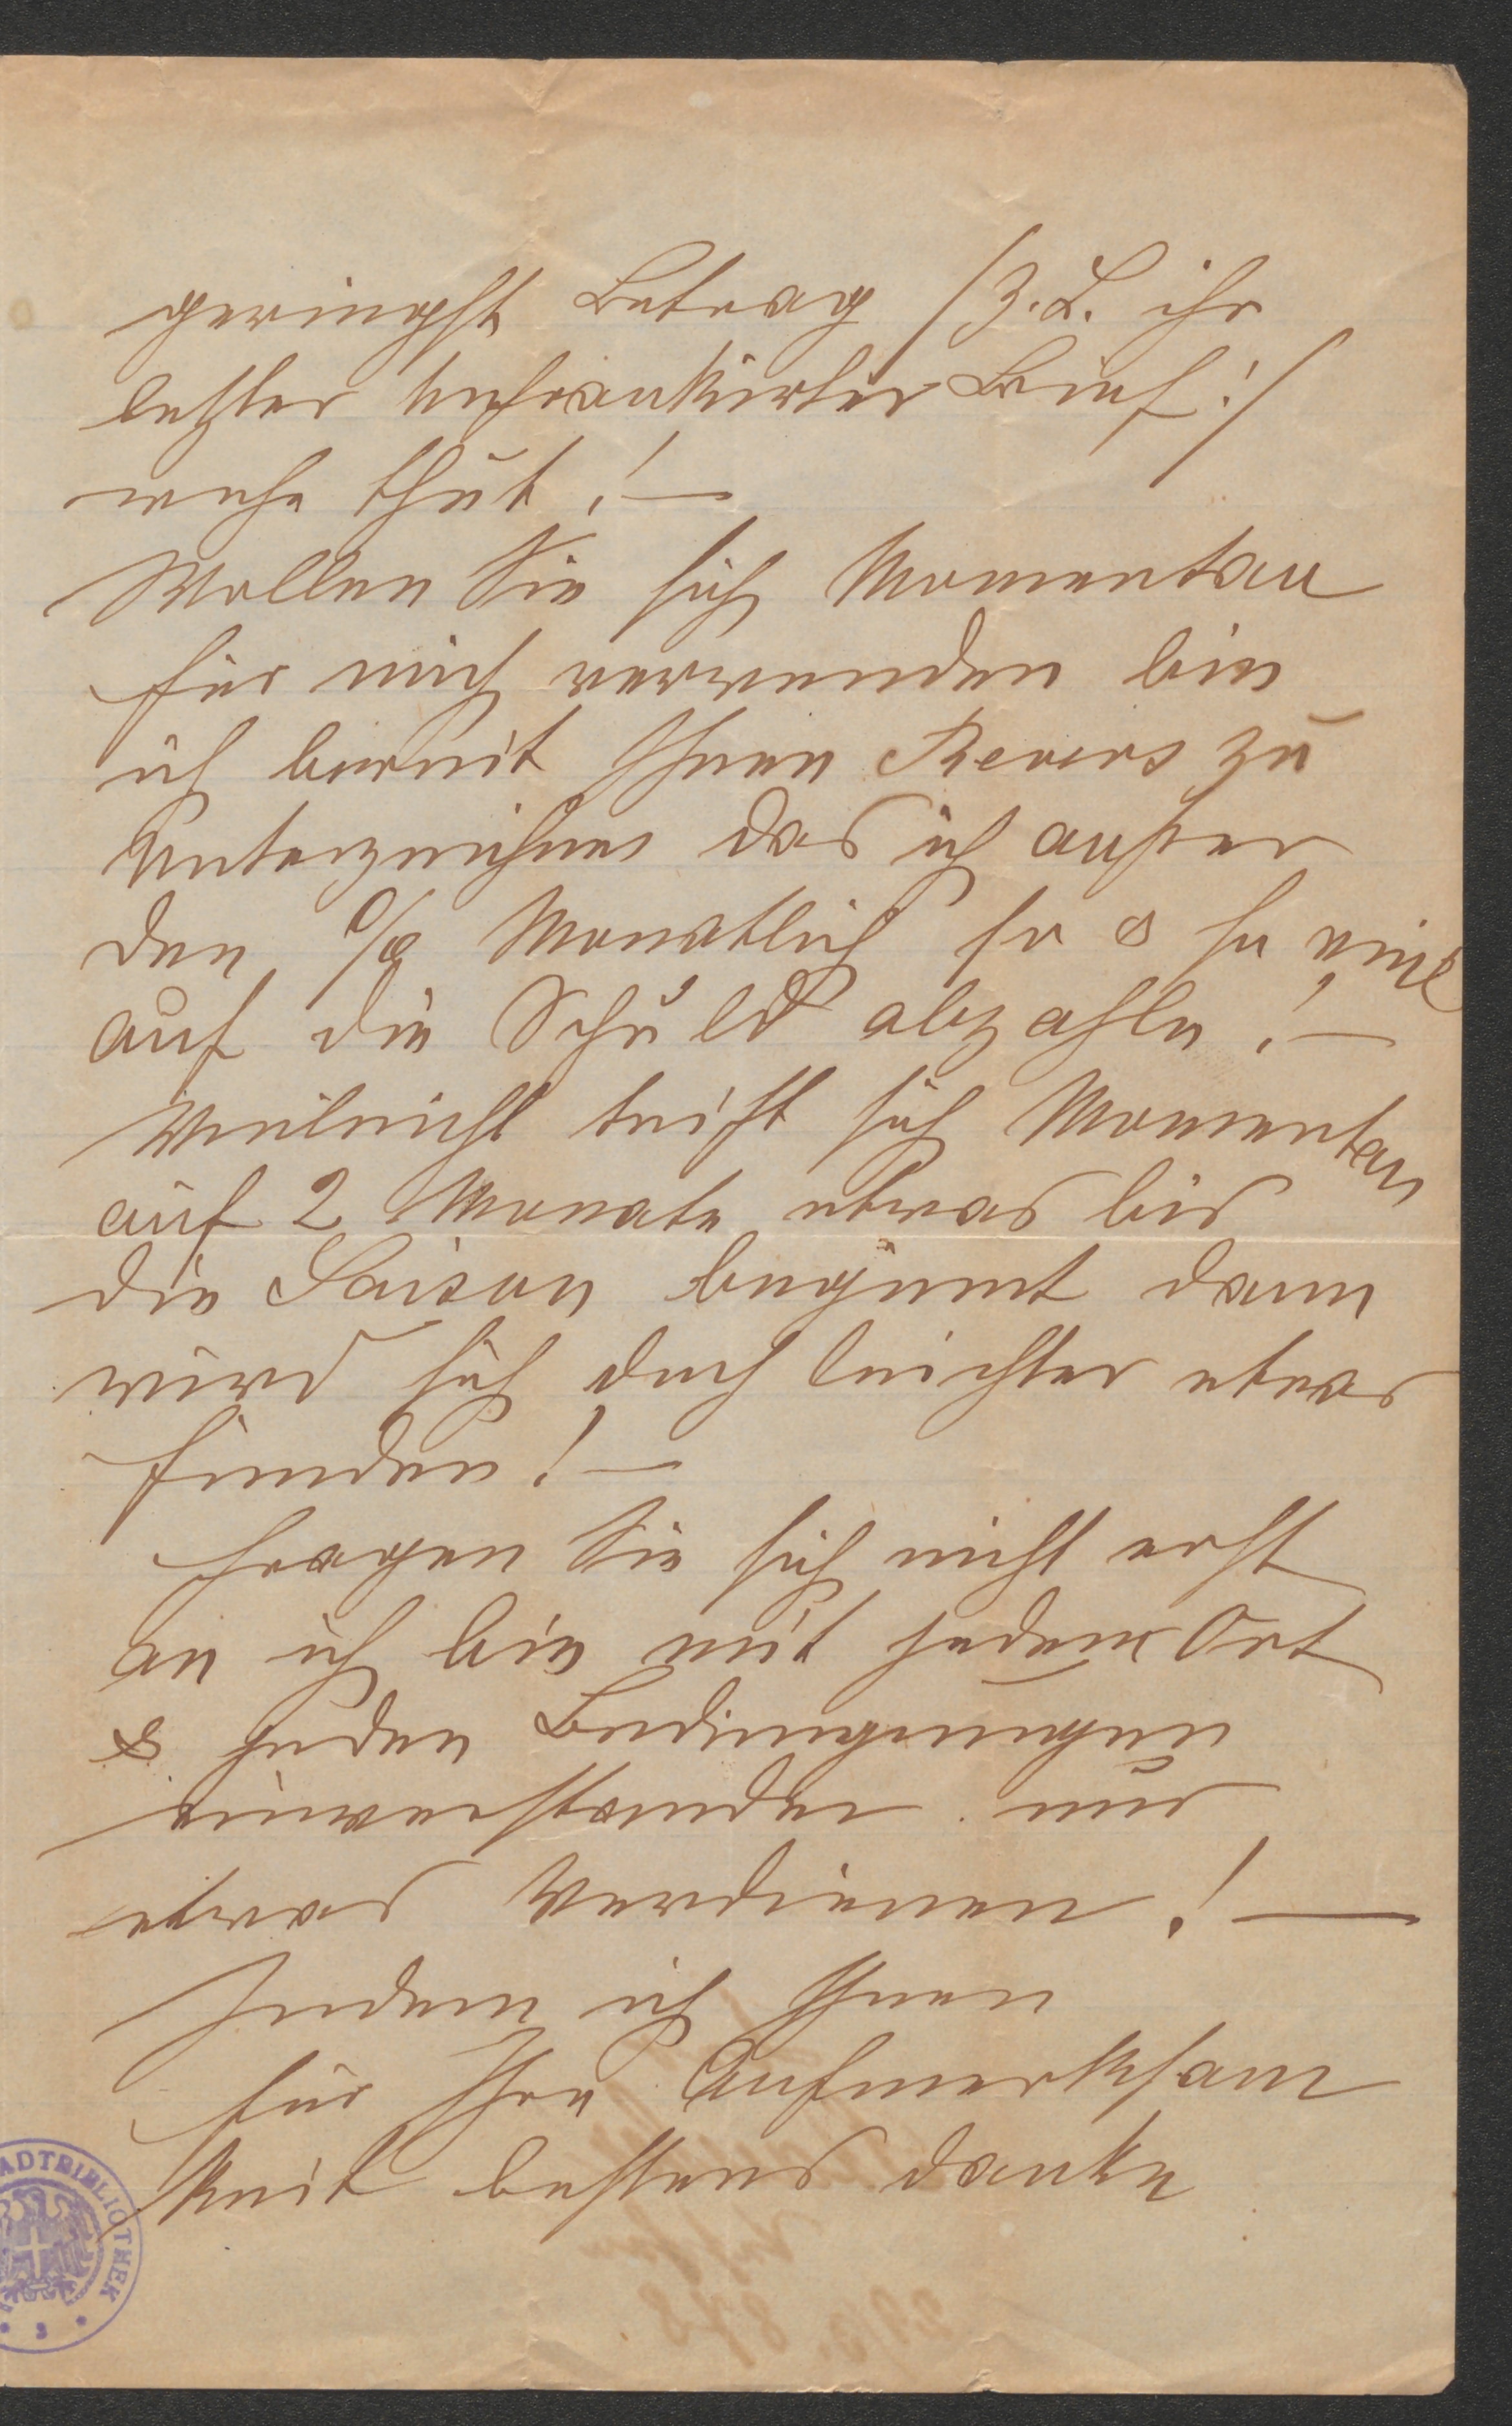 geringste Betrag /z. B. ihr
letzter unfrankirter Brief:/
wehe thut! —
Wollen Sie sich Momentan
für mich verwenden bin
ich bereit Ihnen Revers zu
Unterzeichnen das ich außer
den % Monatlich so & so viel
auf die Schuld abzahle! —
Vieleicht trift sich Momentan
auf 2 Monate etwas bis
die Saison begint dann
wird sich doch leichter etwas
finden! —
Fragen Sie sich nicht erst
an ich bin mit jedem Ort
& jeden Bedingungen
einverstanden nur
etwas Verdienen! —
Indem ich Ihnen
für Ihre Aufmerksam
keit bestens danke
ADTBIBLIOTHEK